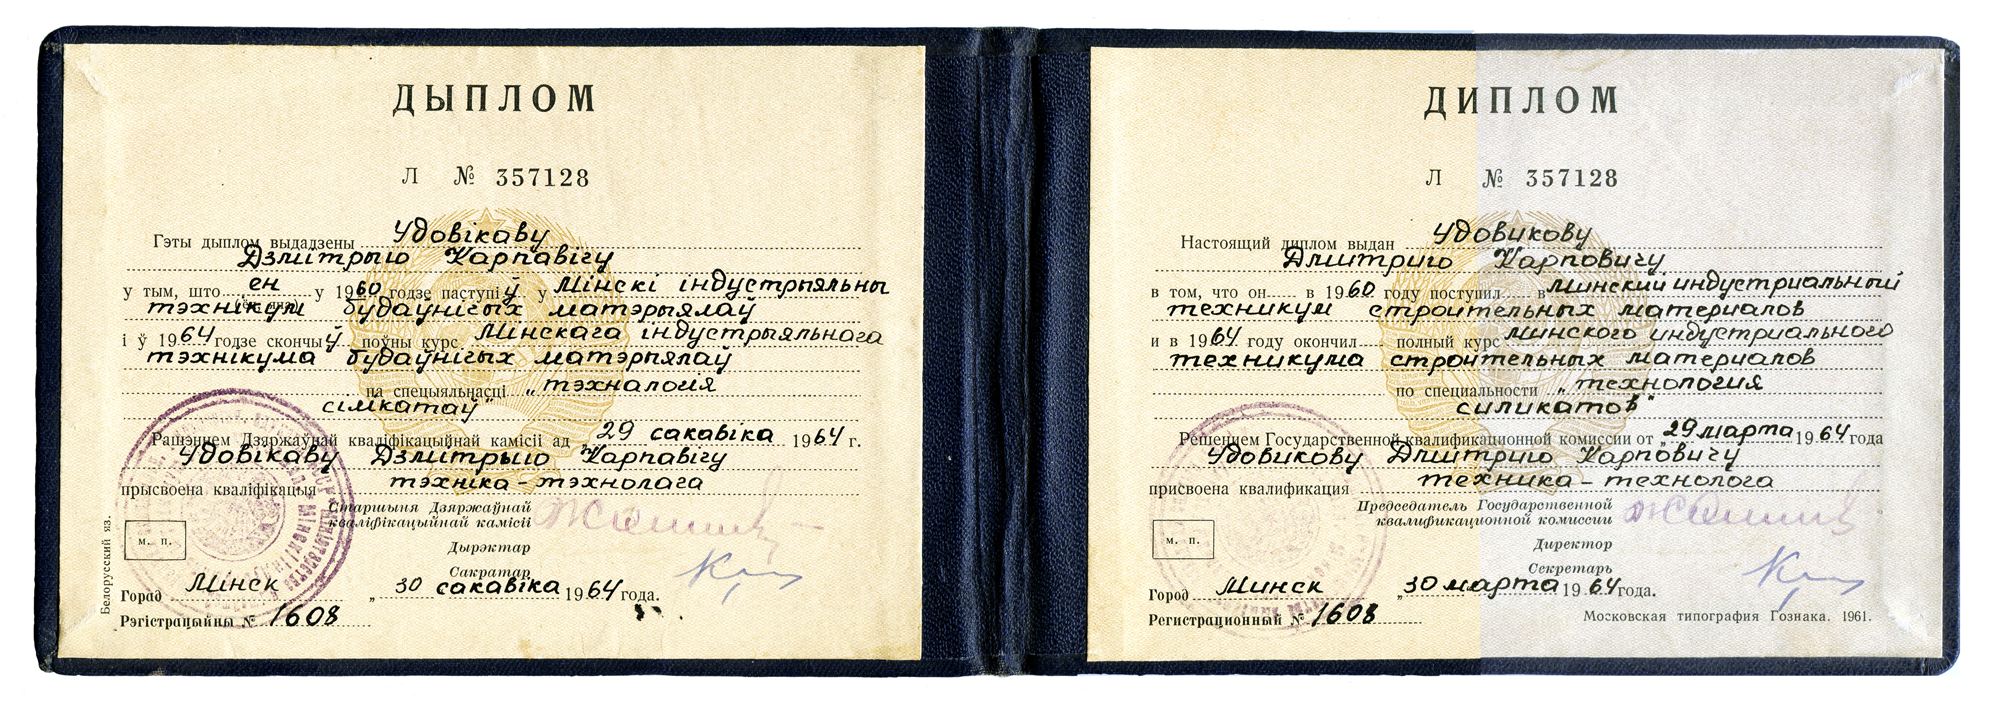 ДЫПЛОМ
Л № 357128
Гэты дыплом выдадзены Удовікаву
Дзмітрыю Карпавічу
у тым, што ён у 1960 годзе паступіў у Мінскі індустрыяльны
(ён, яна)
тэхнікум будаўнічых матэрыялаў
і ў 1964 годзе скончыў поўны курс Мінскага індустрыяльнага
тэхнікума будаўнічых матэрыялаў
на спецыяльнасці „тэхналогія
сілікатаў"
Рашэннем Дзяржаўнай кваліфікацыйнай камісіі ад „29 сакавіка 1964 г.
Удовікаву Дзмітрыю Карпавічу
прысвоена кваліфікацыя тэхніка-тэхнолага
Старшыня Дзяржаўнай
кваліфікацыйнай камісіі
м. п.
Дырэктар
Сакратар
Горад Мінск „30 сакавіка 1964 года.
Рэгістрацыйны № 1608
Белорусский яз.
ДИПЛОМ
Л № 357128
Настоящий диплом выдан Удовикову
Дмитрию Карповичу
в том, что он в 1960 году поступил в Минский индустриальный
техникум строительных материалов
и в 1964 году окончил полный курс Минского индустриального
техникума строительных материалов
по специальности „технология
силикатов"
Решением Государственной квалификационной комиссии от „29 марта 1964 года
Удовикову Дмитрию Карповичу
присвоена квалификация техника-технолога
Председатель Государственной
квалификационной комиссии
м. п.
Директор
Секретарь
Город Минск „30 марта 1964 года.
Регистрационный № 1608
Московская типография Гознака. 1961.